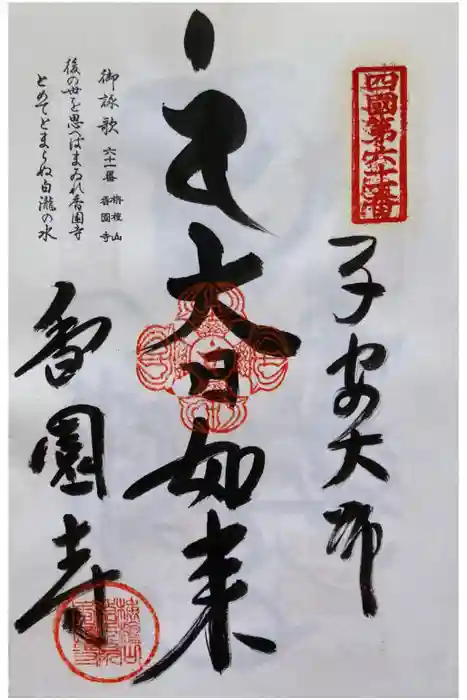 四國第六十一番
子安大師
大日如来
御詠歌 六十一番 栴檀山 香園寺
後の世を思へばまゐれ香園寺
とめてとまらぬ白瀧の水
香園寺